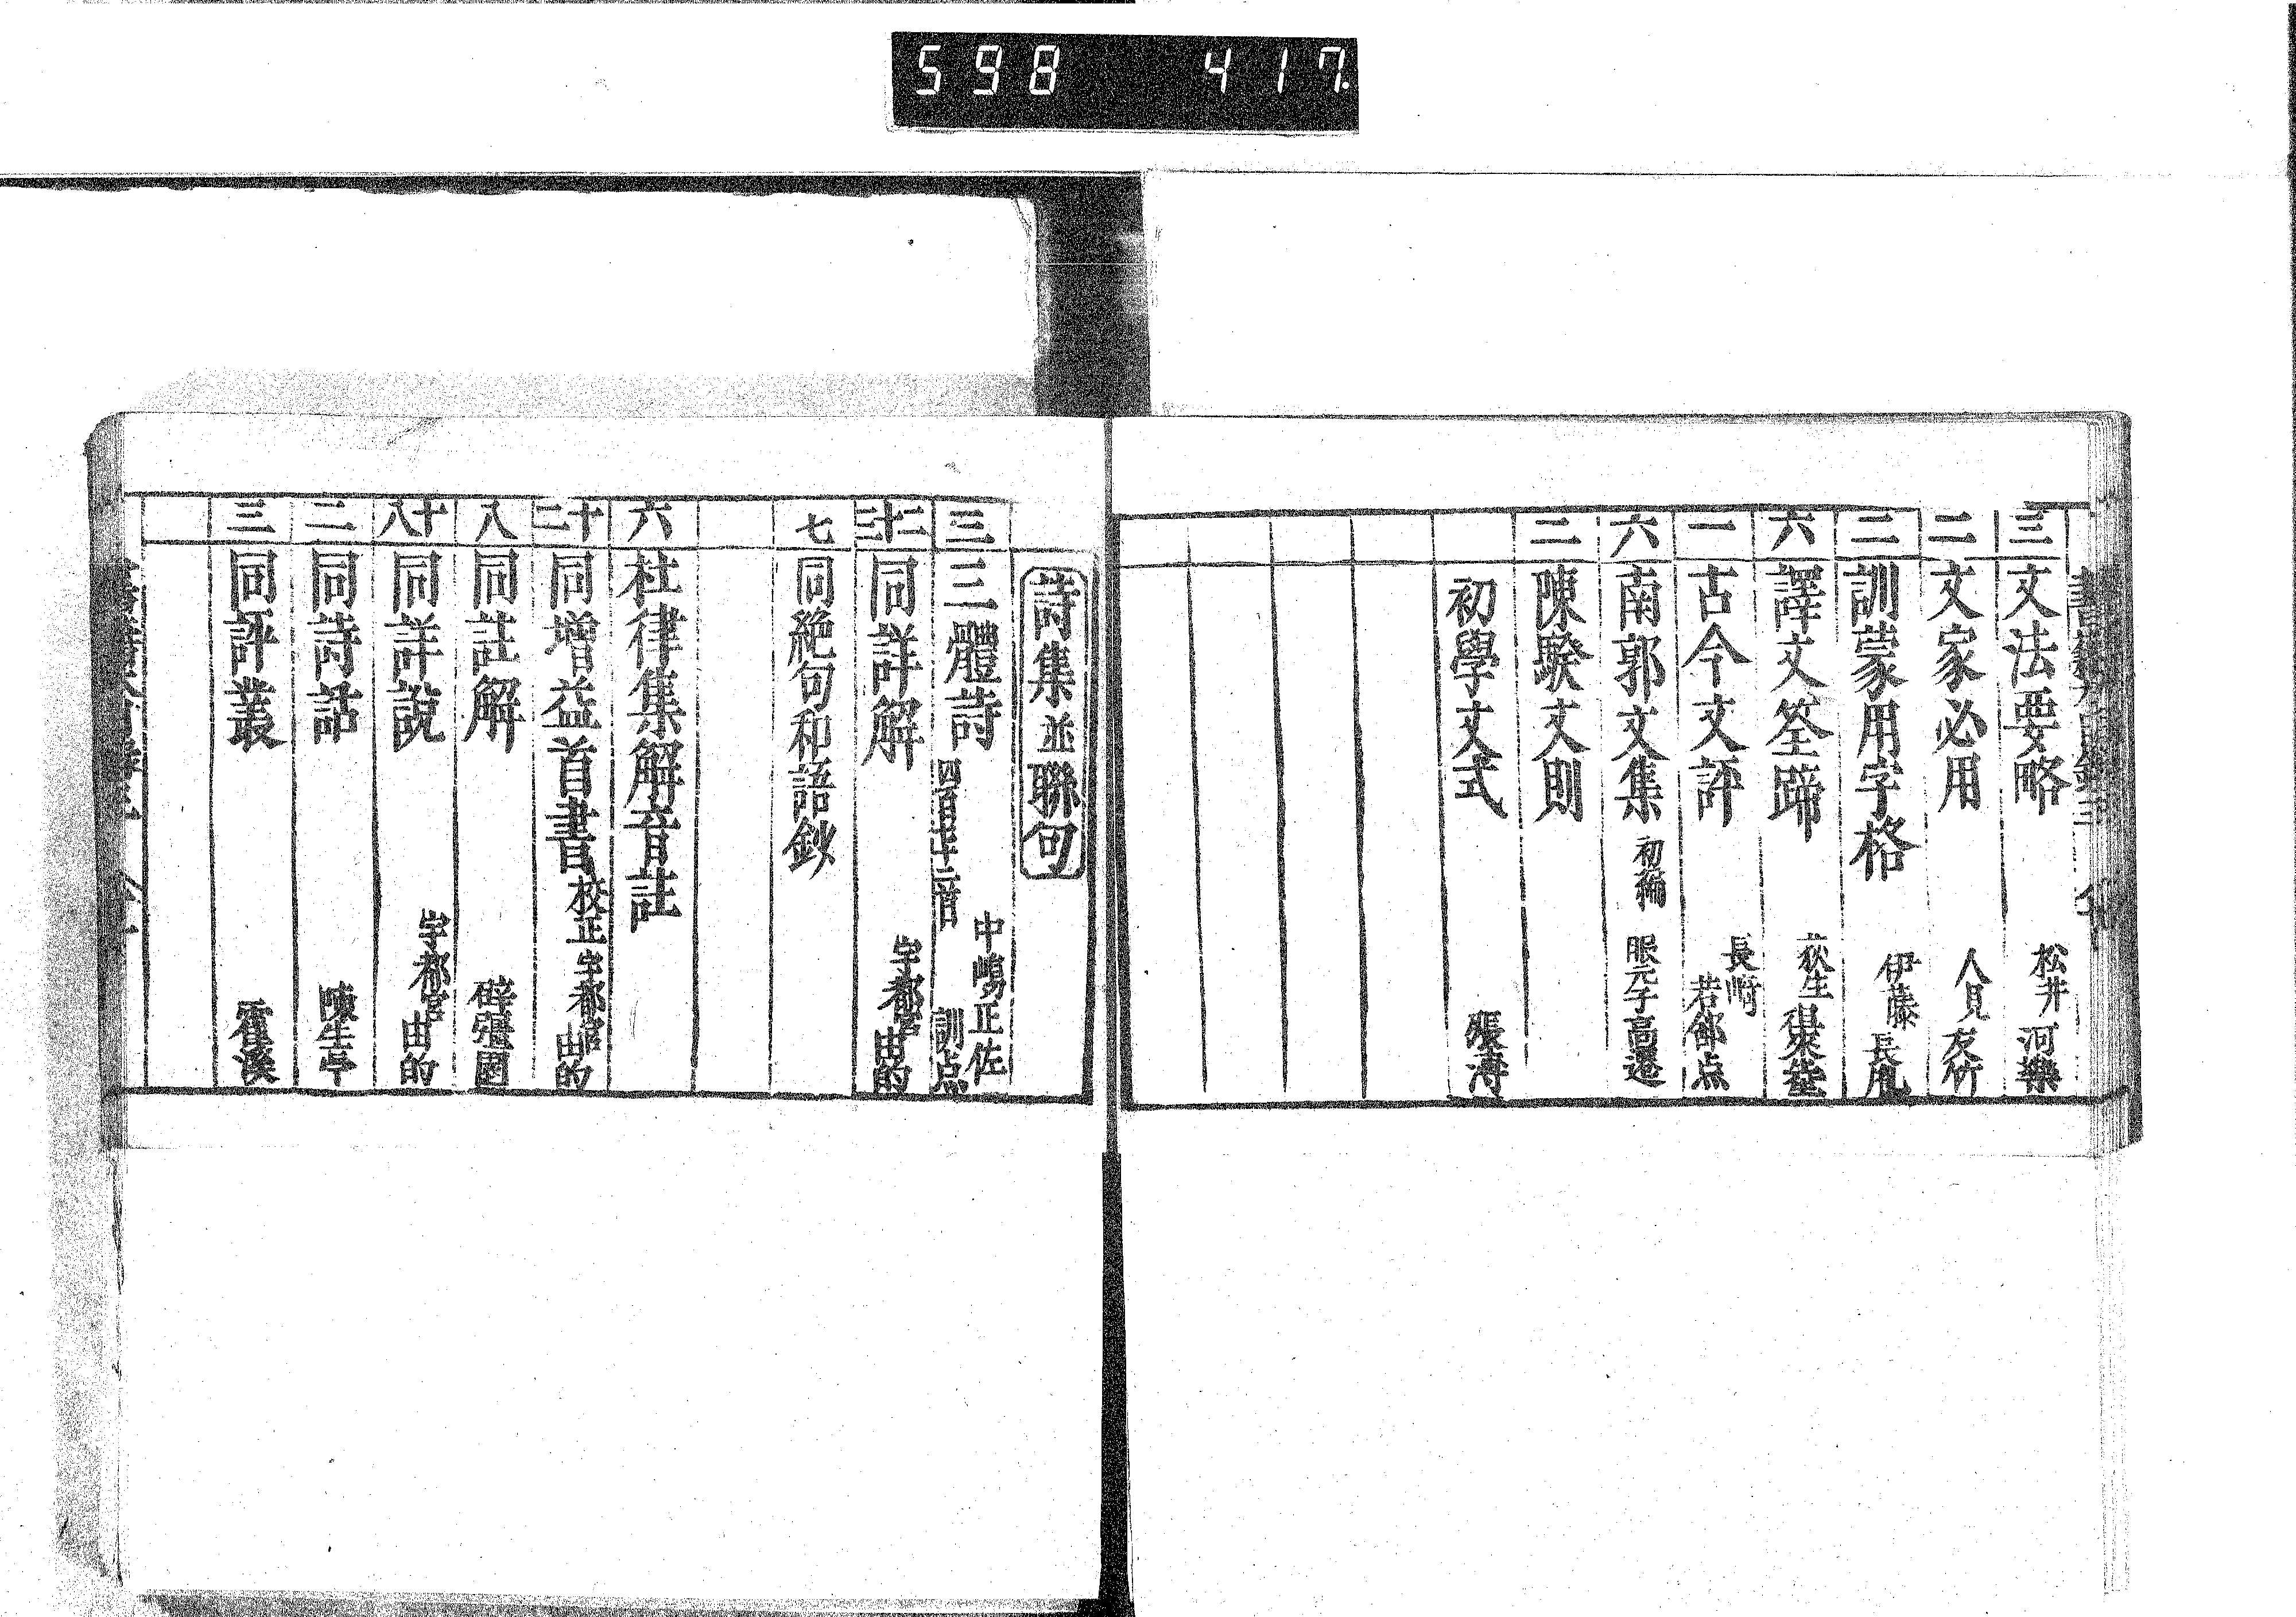 598 417
三 文法要略 松井河樂
二 文家必用 人見友竹
二 訓蒙用字格 伊藤長胤
六 譯文筌蹄 荻生
一 古今文評 長﨑 点
六 南郭文集 初編 服元子高選
二 陳騤文則
初學文式
詩集並聯句
三 三體詩 四百九十二首 中嶋正佐 訓点
同詳解 宇都宮由的
七 同絶句和語鈔
六 杜律集解音註
十二 同増益首書 校正宇都宮由的
八 同註解 薛
十八 同詳説 宇都宮由的
二 同詩話 陳生亭
三 同評叢